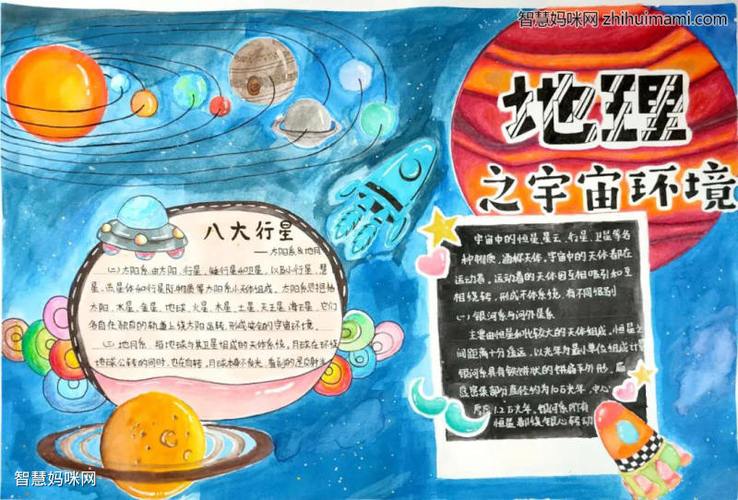 智慧妈咪网 zhihuimami.com
地理
之宇宙环境
八大行星
——太阳系&地月
(一)太阳系:由太阳、行星、矮行星和卫星,以及小行星、彗
星、流星体和行星际物质等太阳系小天体组成。太阳系思祖始
太阳、水星、金星、地球、火星、木星、土星、天王星、海王星、它们
各自在独自的轨道上绕太阳运转,形成稳定的宇宙环境。
(二)地月系:指地球与其卫星组成的天体系统,月球在环绕
地球公转的同时,也在自转,月球本身不发光,看到的是反射
宇宙中的恒星、星云、行星、卫星等各
种物质,通称天体。宇宙中的天体都在
运动着,运动着的天体因互相吸引和互
相绕转,形成天体系统,有不同级别
(一)银河系与河外星系
主要由恒星和比较大的天体组成,恒星之
间距离十分遥远,以光年为最小单位组成计算
银河系具有铁饼状的饼扁平外形,
星密集部分直径约为10万光年,中心
厚度1.2万光年,银河系所有
恒星都绕银心转动
智慧妈咪网